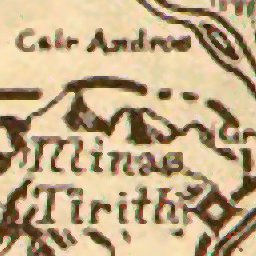 Cair Andros
Minas
Tirith